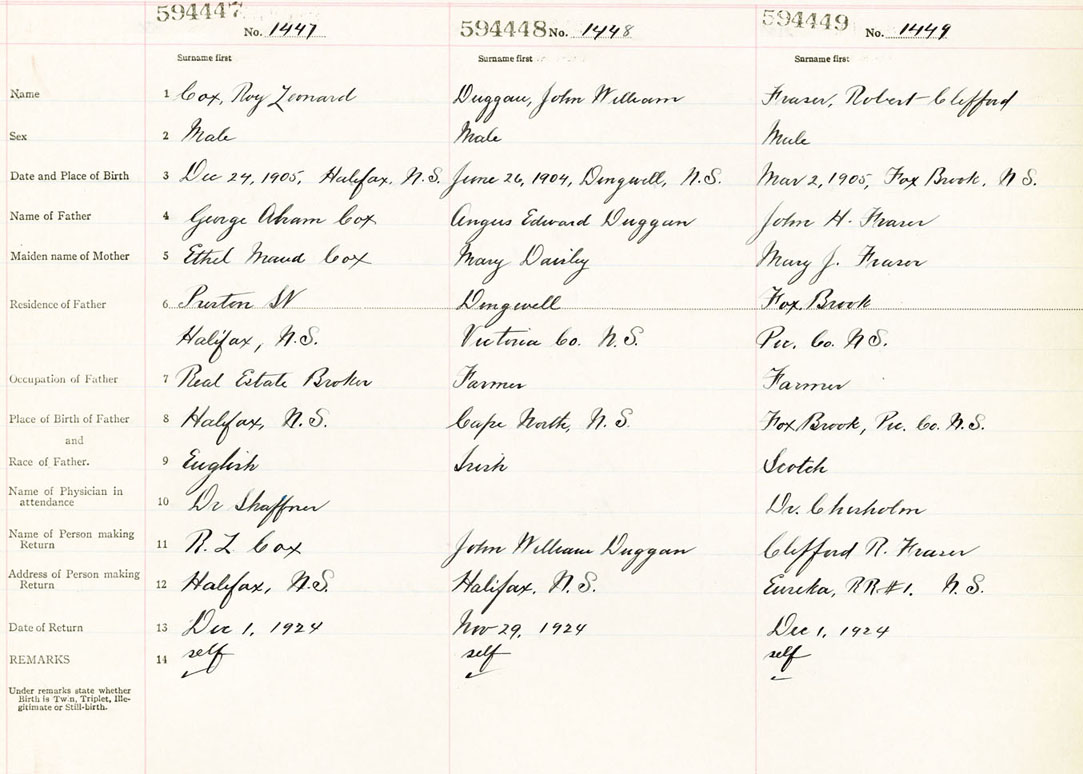 594447 594448 594449
No. 1447 No. 1448 No. 1449
Surname first Surname first Surname first
Name 1 Cox, Roy Leonard Duggan, John William Fraser, Robert Clifford
Sex 2 Male Male Male
Date and Place of Birth 3 Dec 24, 1905, Halifax, N.S. June 26, 1904, Dingwell, N.S. Mar 2, 1905, Fox Brook, N S.
Name of Father 4 George Abram Cox Angus Edward Duggan John H. Fraser
Maiden name of Mother 5 Ethel Maud Cox Mary Mary J. Fraser
Residence of Father 6 Preston St Dingwell Fox Brook
Halifax, N.S. Victoria Co. N.S. Pic. Co. N S.
Occupation of Father 7 Real Estate Broker Farmer Farmer
Place of Birth of Father 8 Halifax, N.S. Cape North, N.S. Fox Brook, Pic. Co. N.S.
and
Race of Father. 9 English Irish Scotch
Name of Physician in
attendance 10 Dr Shaffner Dr. Chisholm
Name of Person making
Return 11 R. L Cox John William Duggan Clifford R. Fraser
Address of Person making
Return 12 Halifax, N.S. Halifax, N.S. Eureka, RR#1. N.S.
Date of Return 13 Dec 1, 1924 Nov 29, 1924 Dec 1, 1924
REMARKS 14 self self self
Under remarks state whether
Birth is Twin, Triplet, Ille-
gitimate or Still-birth.